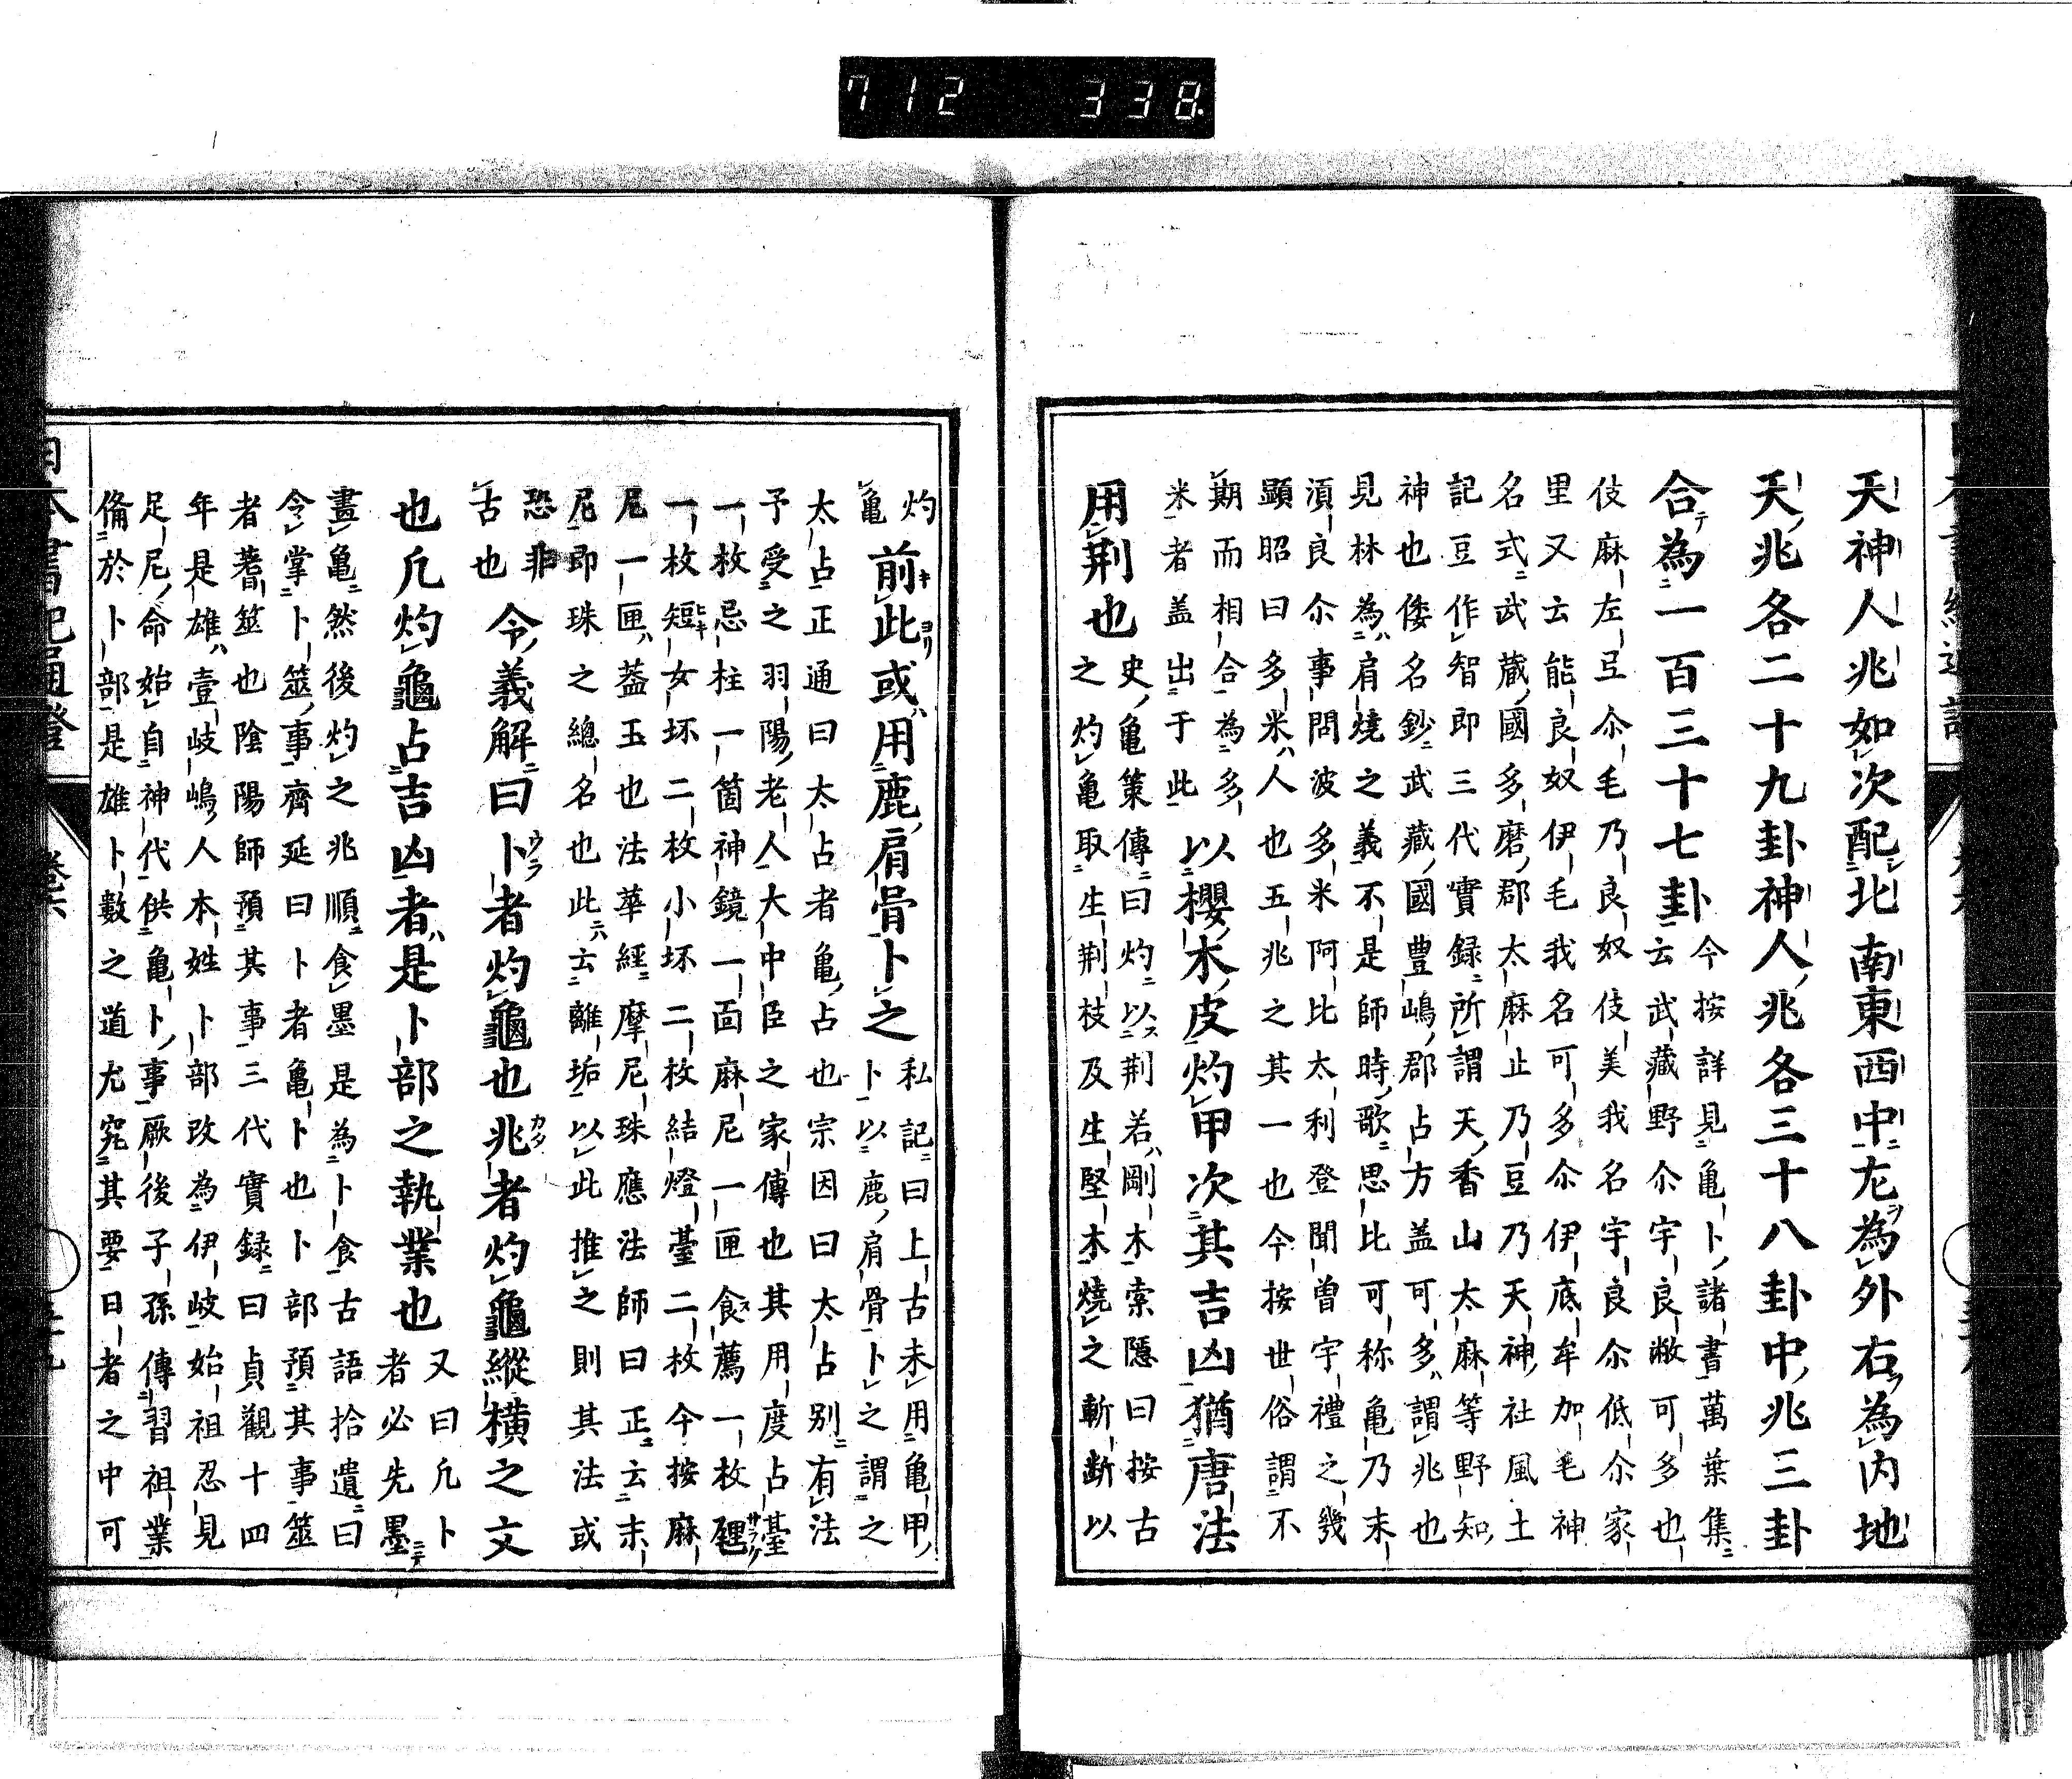 712 338
天神人兆如次配北南東西中尢為外右為内地
天兆各二十九卦神人兆各三十八卦中兆三卦
合為一百三十七卦
今按詳見亀卜諸書萬葉集
云武藏野尒宇良敝可多也
伎麻左弖尒毛乃良奴伎美我名宇良尒低尒家
里又云能良奴伊毛我名可多尒伊底牟加毛神
名式武蔵國多磨郡太麻止乃豆乃天神社風土
記豆作智即三代實録所謂天香山太麻等野知
神也倭名鈔武藏國豊嶋郡占方盖可多謂兆也
見林為肩燒之義不是師時歌思比可称亀乃末
湏良尒事問波多米阿比太利登聞曽宇禮之幾
顯昭曰多米人也五兆之其一也今按世俗謂不
期而相合為多
米者盖出于此
以櫻木皮灼甲次其吉凶猶唐法
用荆也
史亀策傳曰灼以荆若剛木索隱曰按古
之灼亀取生荆枝及生堅木燒之斬断以
灼
亀
前此或用鹿肩骨卜之
私記曰上古未用亀甲
卜以鹿肩骨卜之謂之
太占正通曰太占者亀占也宗因曰太占别有法
予受之羽陽老人大中臣之家傳也其用度占臺
一枚忌柱一箇神鏡一面麻尼一匣食薦一枚
一枚短女坏二枚小坏二枚結燈臺二枚今按麻
尼一匣葢玉也法華經摩尼珠應法師曰正云末
尼即珠之總名也此云離垢以此推之則其法或
恐非
古也
令義解曰卜者灼龜也兆者灼龜縱横之文
也凡灼龜占吉凶者是卜部之執業也
又曰凡卜
者必先墨
畫亀然後灼之兆順食墨是為卜食古語拾遺曰
令掌卜筮事齊延曰卜者亀卜也卜部預其事筮
者蓍筮也陰陽師預其事三代實録曰貞觀十四
年是雄壹岐嶋人本姓卜部改為伊岐始祖忍見
足尼命始自神代供亀卜事厥後子孫傳習祖業
備於卜部是雄卜數之道尤究其要日者之中可